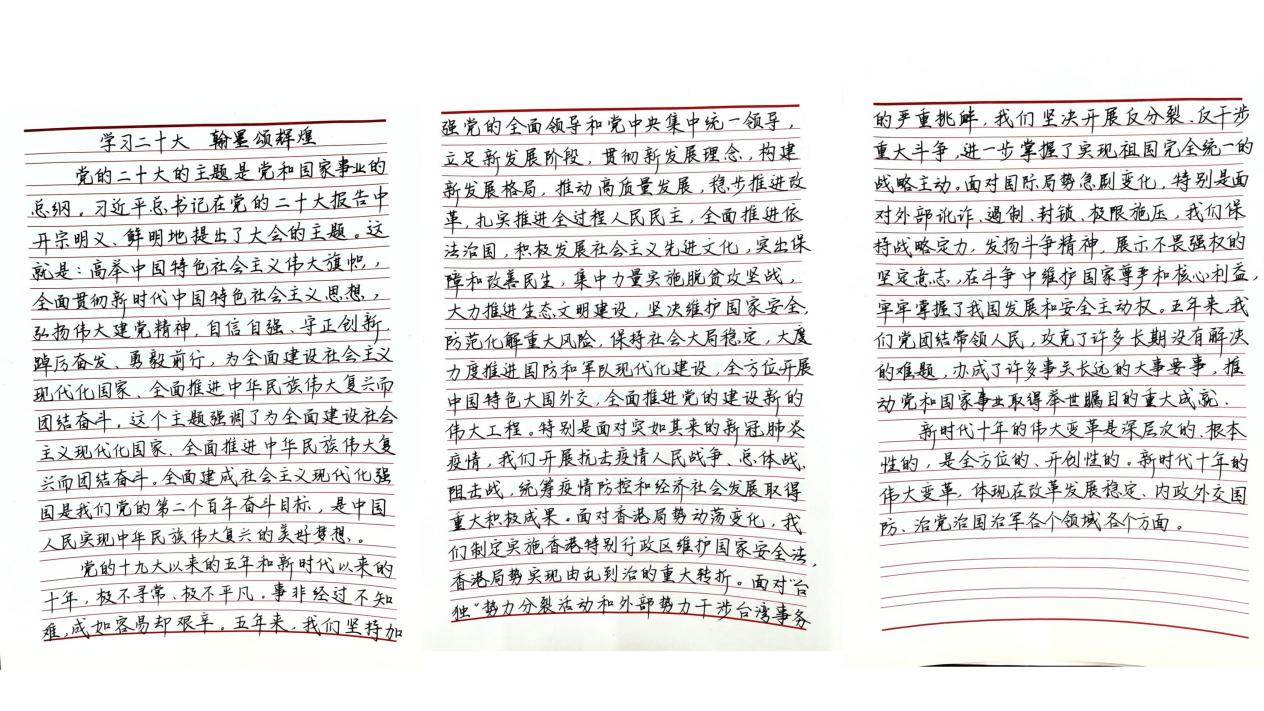 学习二十大 翰墨颂辉煌
党的二十大的主题是党和国家事业的
总纲。习近平总书记在党的二十大报告中
开宗明义、鲜明地提出了大会的主题。这
就是：高举中国特色社会主义伟大旗帜，
全面贯彻新时代中国特色社会主义思想，
弘扬伟大建党精神，自信自强、守正创新
踔厉奋发、勇毅前行，为全面建设社会主义
现代化国家、全面推进中华民族伟大复兴而
团结奋斗。这个主题强调了为全面建设社会
主义现代化国家、全面推进中华民族伟大复
兴而团结奋斗。全面建成社会主义现代化强
国是我们党的第二个百年奋斗目标，是中国
人民实现中华民族伟大复兴的美好梦想。
党的十九大以来的五年和新时代以来的
十年，极不寻常、极不平凡。事非经过不知
难，成如容易却艰辛。五年来，我们坚持加
强党的全面领导和党中央集中统一领导，
立足新发展阶段，贯彻新发展理念，构建
新发展格局，推动高质量发展，稳步推进改
革，扎实推进全过程人民民主，全面推进依
法治国，积极发展社会主义先进文化，突出保
障和改善民生，集中力量实施脱贫攻坚战，
大力推进生态文明建设，坚决维护国家安全，
防范化解重大风险，保持社会大局稳定，大度
力度推进国防和军队现代化建设，全方位开展
中国特色大国外交，全面推进党的建设新的
伟大工程。特别是面对突如其来的新冠肺炎
疫情，我们开展抗击疫情人民战争、总体战、
阻击战，统筹疫情防控和经济社会发展取得
重大积极成果。面对香港局势动荡变化，我
们制定实施香港特别行政区维护国家安全法，
香港局势实现由乱到治的重大转折。面对“台
独”势力分裂活动和外部势力干涉台湾事务
的严重挑衅，我们坚决开展反分裂、反干涉
重大斗争，进一步掌握了实现祖国完全统一的
战略主动。面对国际局势急剧变化，特别是面
对外部讹诈、遏制、封锁、极限施压，我们保
持战略定力，发扬斗争精神，展示不畏强权的
坚定意志，在斗争中维护国家尊严和核心利益，
牢牢掌握了我国发展和安全主动权。五年来，我
们党团结带领人民，攻克了许多长期没有解决
的难题，办成了许多事关长远的大事要事，推
动党和国家事业取得举世瞩目的重大成就。
新时代十年的伟大变革是深层次的、根本
性的，是全方位的、开创性的。新时代十年的
伟大变革，体现在改革发展稳定、内政外交国
防、治党治国治军各个领域各个方面。